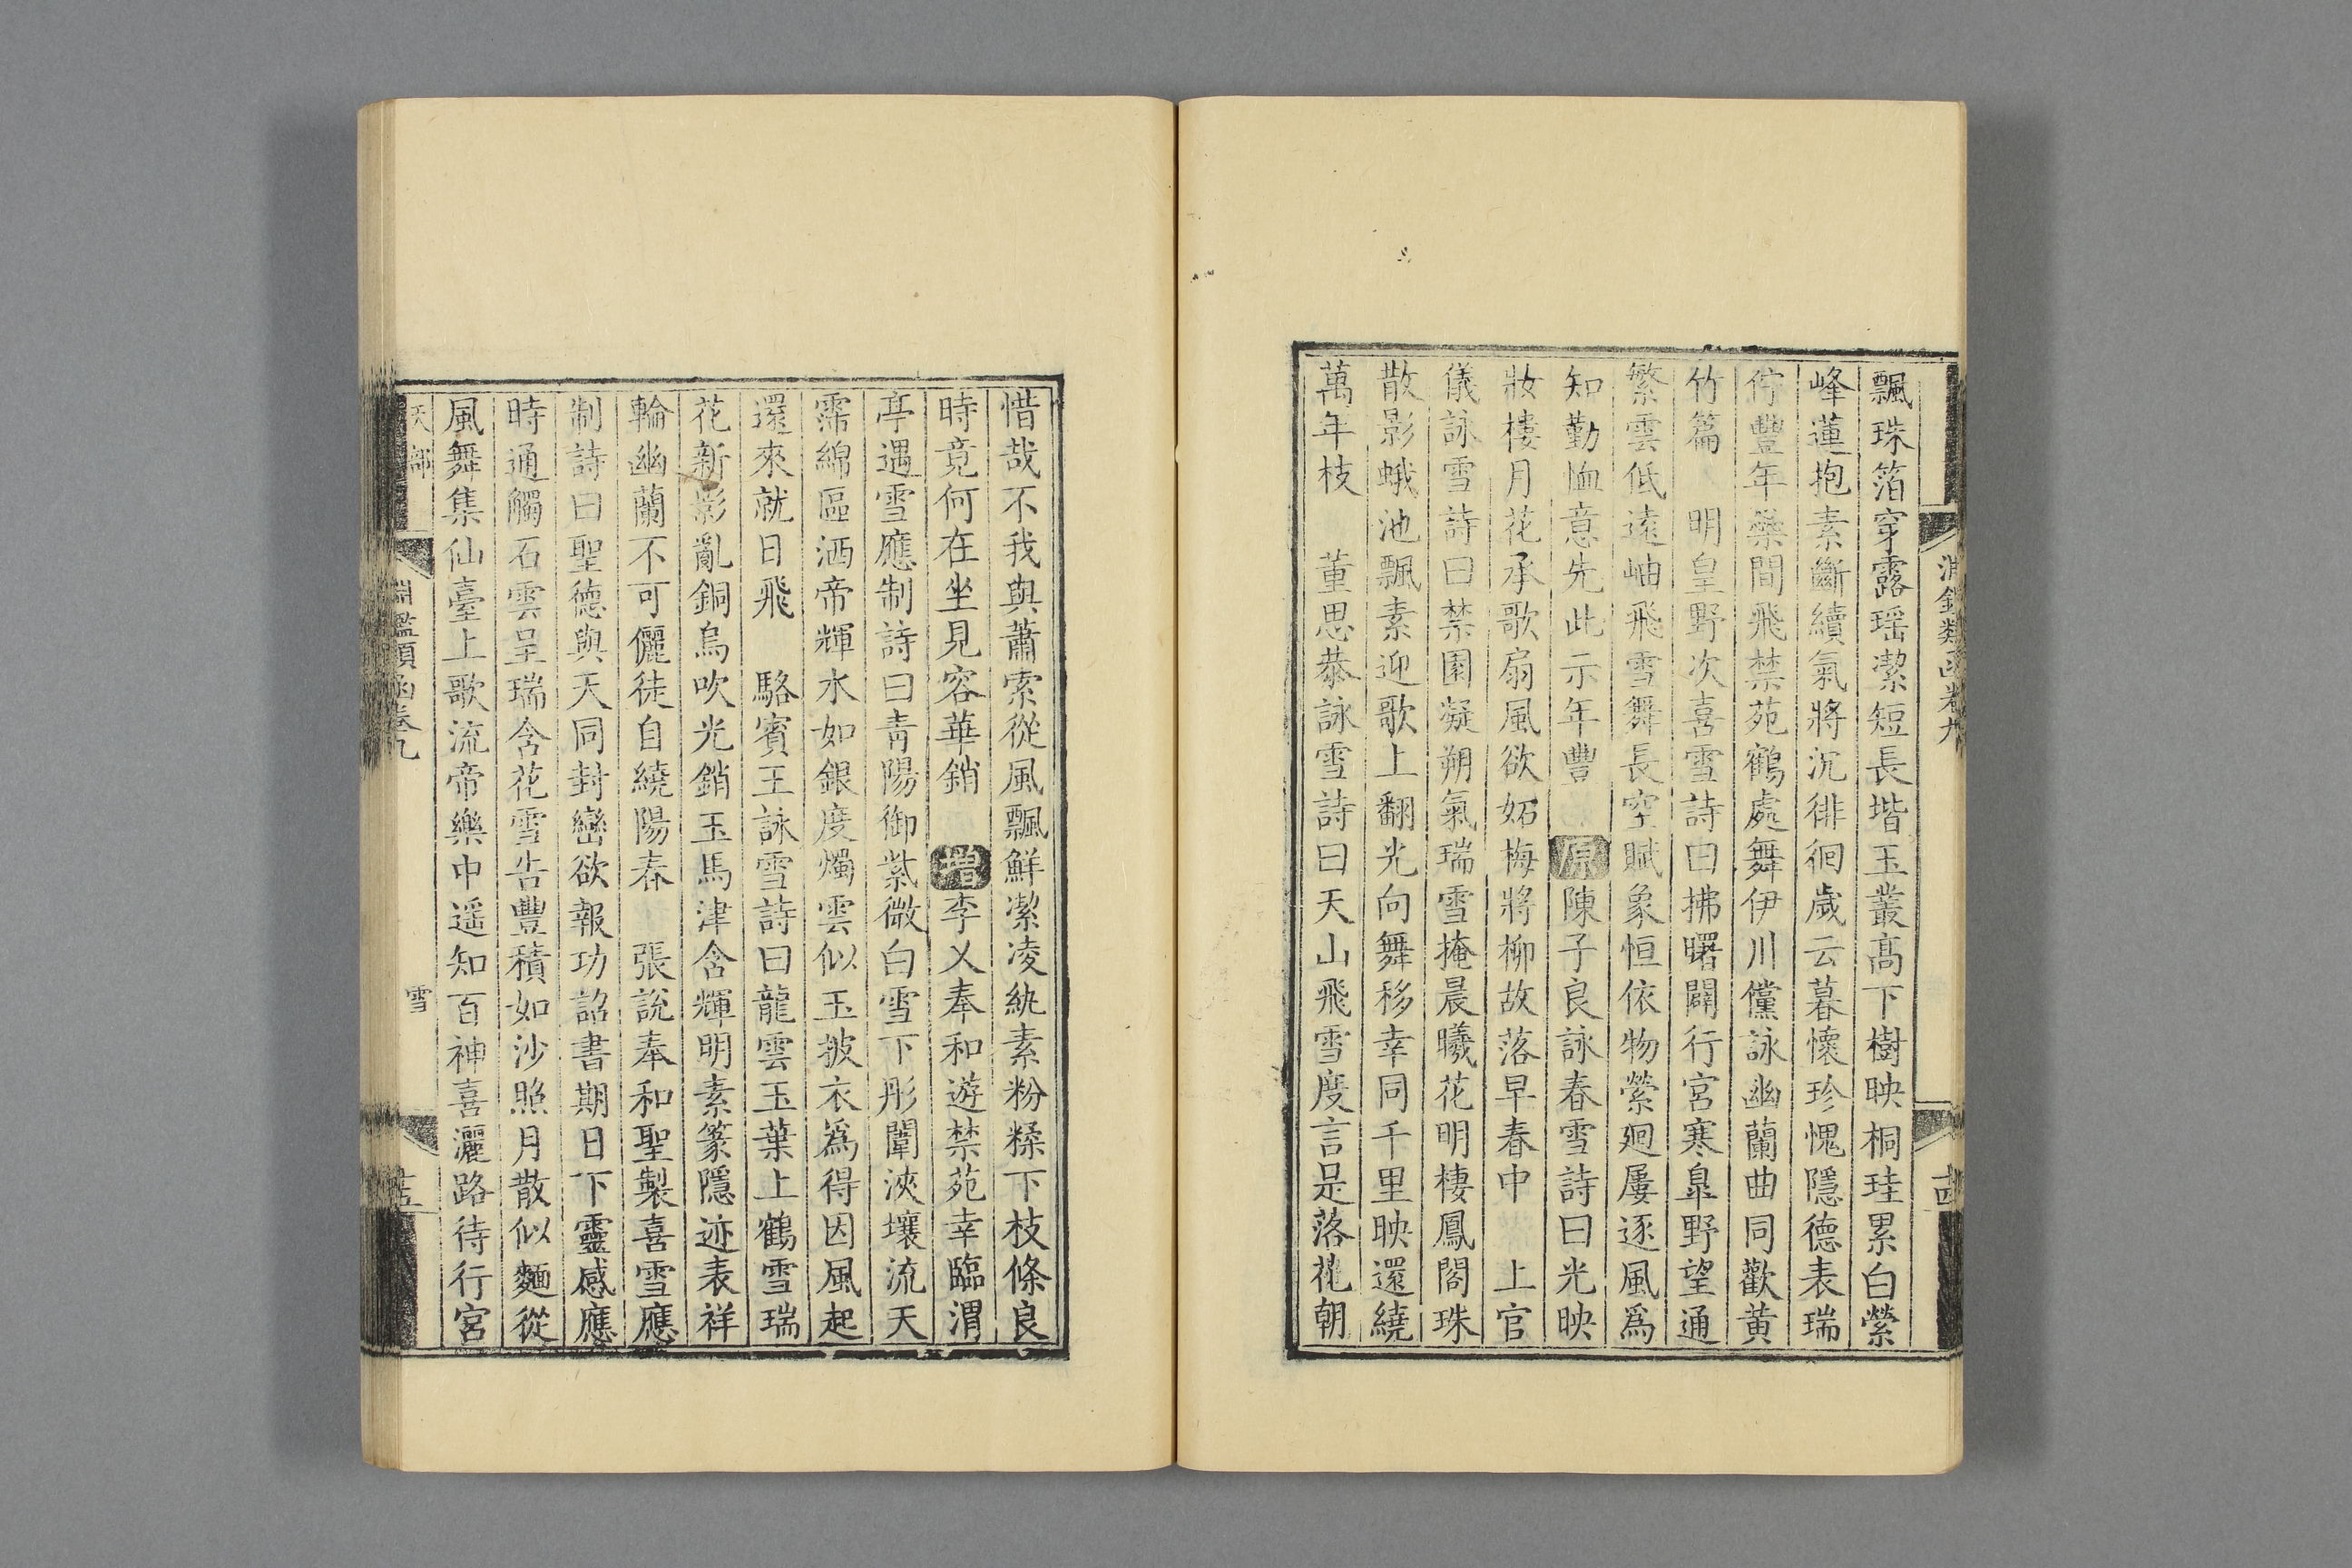 淵鑑類函卷九
十四
飄珠箔穿露瑶潔短長堦玉叢高下樹映桐珪累白縈
峰蓮抱素斷續氣將沉徘徊歲云暮懷珍愧隱德表瑞
佇豐年蘂間飛禁苑鶴處舞伊川儻詠幽蘭曲同歡黄
竹篇　明皇野次喜雪詩曰拂曙闢行宮寒臯野望通
繁雲低遠岫飛雪舞長空賦象恒依物縈廻屢逐風爲
知勤恤意先此示年豐　原陳子良詠春雪詩曰光映
妝樓月花承歌扇風欲妬梅將柳故落早春中　上官
儀詠雪詩曰禁園凝朔氣瑞雪掩晨曦花明棲鳳閣珠
散影蛾池飄素迎歌上翻光向舞移幸同千里映還繞
萬年枝　董思恭詠雪詩曰天山飛雪度言是落花朝
惜哉不我與蕭索從風飄鮮潔凌紈素粉糅下枝條良
時竟何在坐見容華銷　增李乂奉和遊禁苑幸臨渭
亭遇雪應制詩曰青陽御紫微白雪下彤闈浹壤流天
霈綿區洒帝輝水如銀度燭雲似玉披衣爲得因風起
還來就日飛　駱賓王詠雪詩曰龍雲玉葉上鶴雪瑞
花新影亂銅烏吹光銷玉馬津含輝明素篆隱迹表祥
輪幽蘭不可儷徒自繞陽春　張說奉和聖製喜雪應
制詩曰聖德與天同封巒欲報功詔書期日下靈感應
時通觸石雲呈瑞含花雪告豐積如沙照月散似麵從
風舞集仙臺上歌流帝樂中遥知百神喜灑路待行宮
天部
淵鑑類函卷九
雪
十五